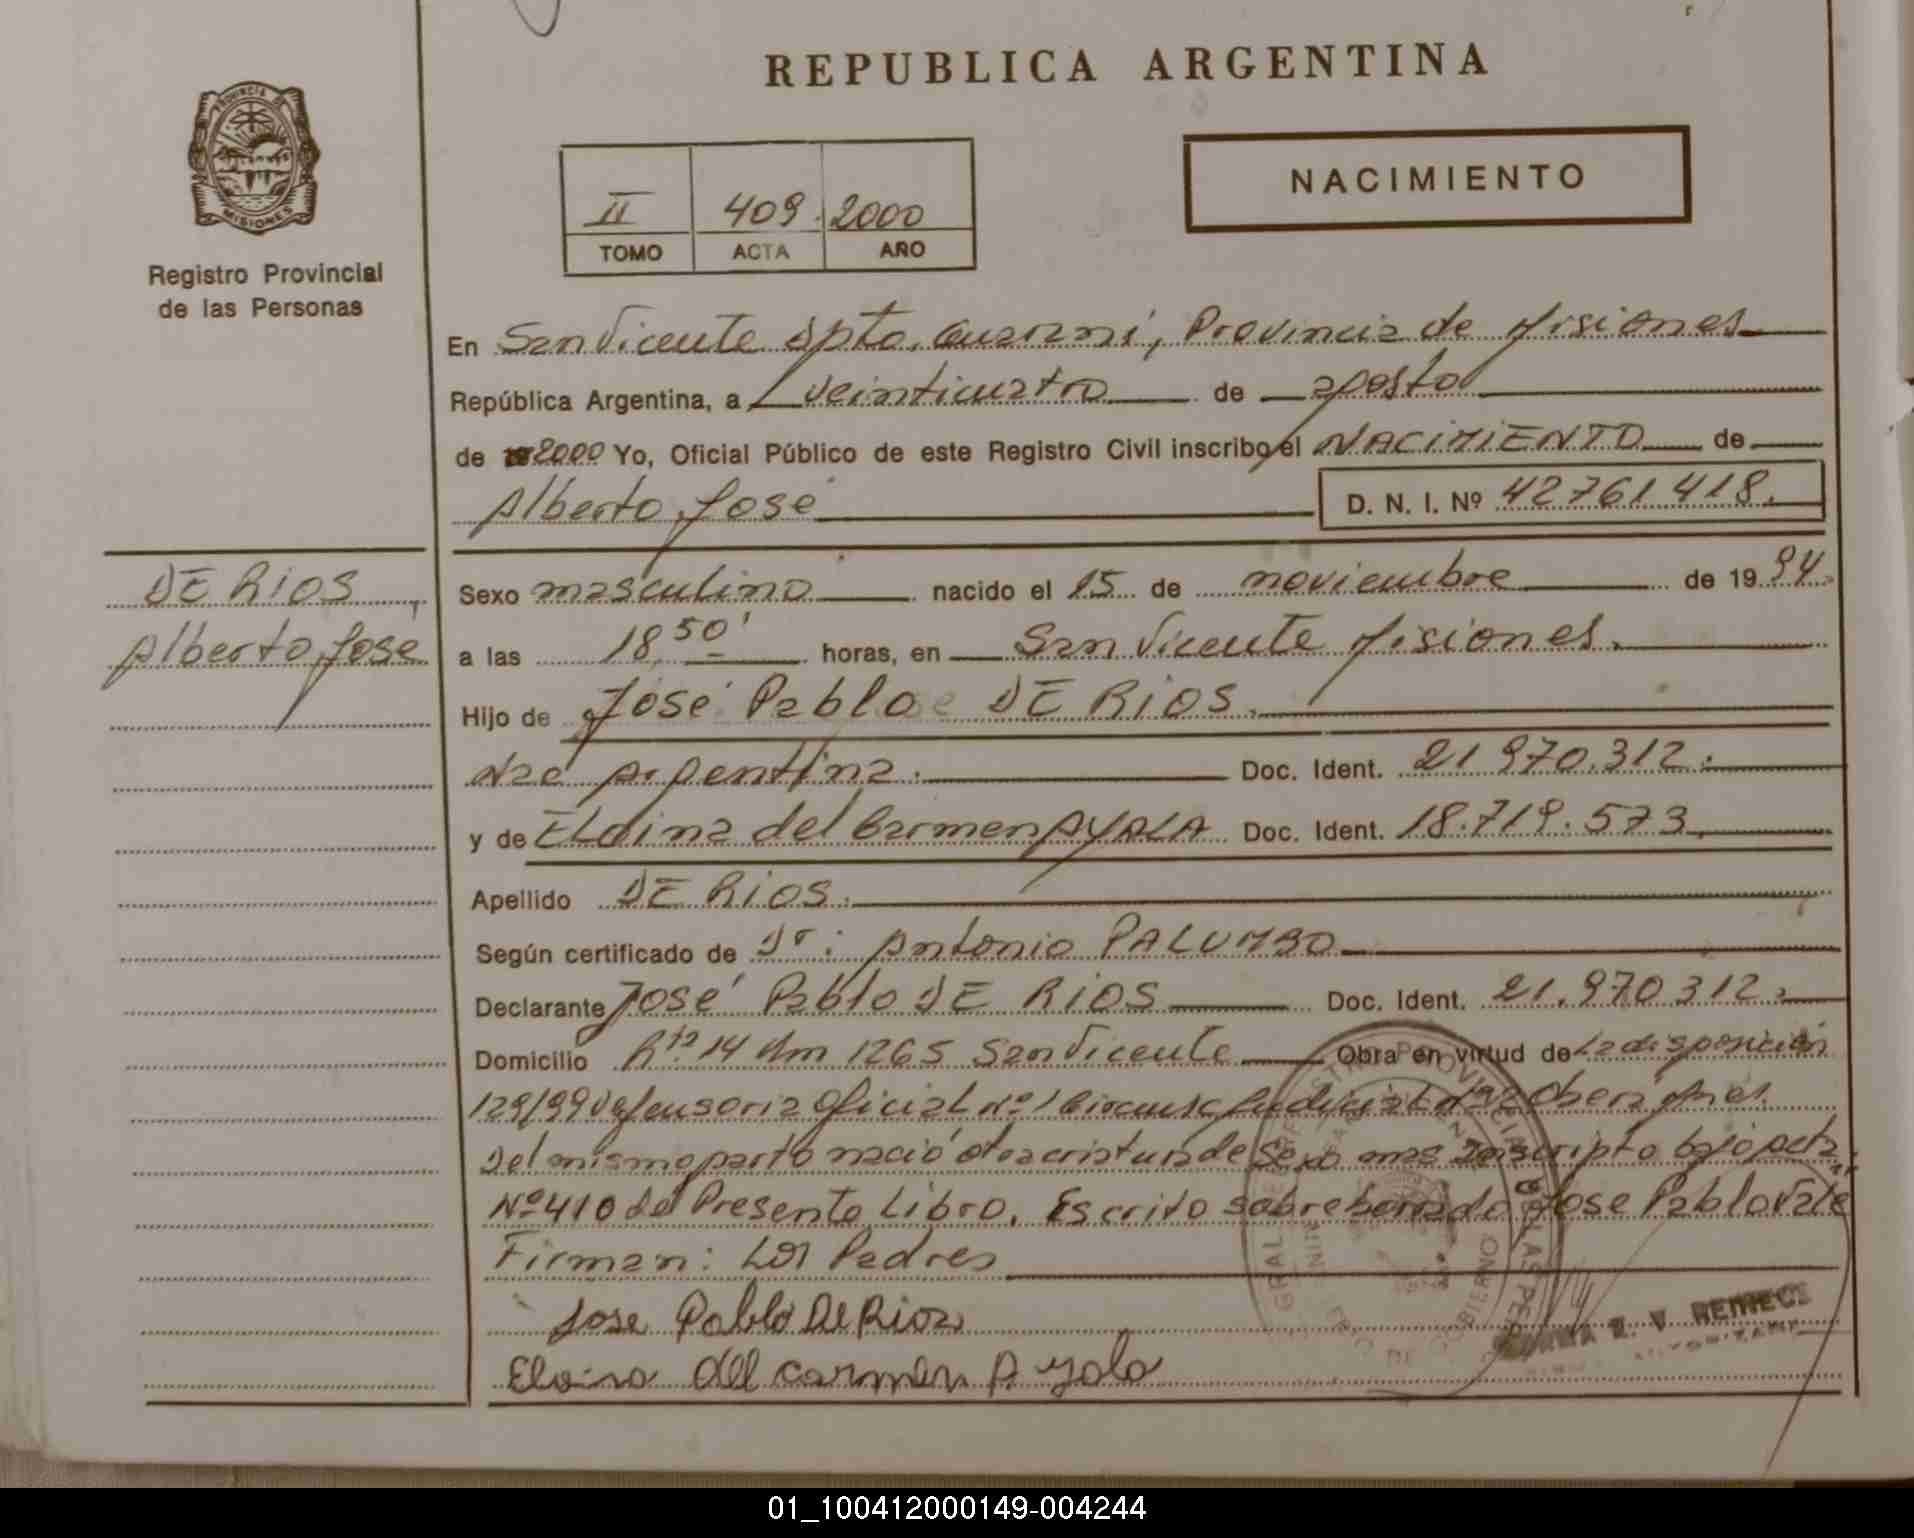 REPUBLICA ARGENTINA
PROVINCIA DE
MISIONES
Registro Provincial
de las Personas
II 409 2000
TOMO ACTA AÑO
NACIMIENTO
En San Vicente Dpto. Guaraní, Provincia de Misiones
República Argentina, a veinticuatro de agosto
de 2000 Yo, Oficial Público de este Registro Civil inscribo el NACIMIENTO de
Alberto José D. N. I. Nº 42761418.
DE RIOS
Alberto José
Sexo masculino nacido el 15 de noviembre de 1994
a las 18,50' horas, en San Vicente Misiones.
Hijo de José Pablo DE RIOS.
Nac Argentina. Doc. Ident. 21.970.312.
y de ELoina del Carmen AYALA Doc. Ident. 18.719.573.
Apellido DE RIOS.
Según certificado de Dr: Antonio PALUMBO
Declarante José Pablo DE RIOS Doc. Ident. 21.970312.
Domicilio Rta 14 Km 1265 San Vicente Obra en virtud de La disposición
129/99 Defensoria Oficial Nº 1 Circunsc Judicial Nº 2 Oberá Mnes.
Del mismo parto nació otra criatura de Sexo mas Inscripto bajo acta
Nº 410 del Presente Libro. Escrito sobre borrado José Pablo Vale
Firman: Los Padres
Jose Pablo De Rios
Eloina del carmen Ayala
01_100412000149-004244